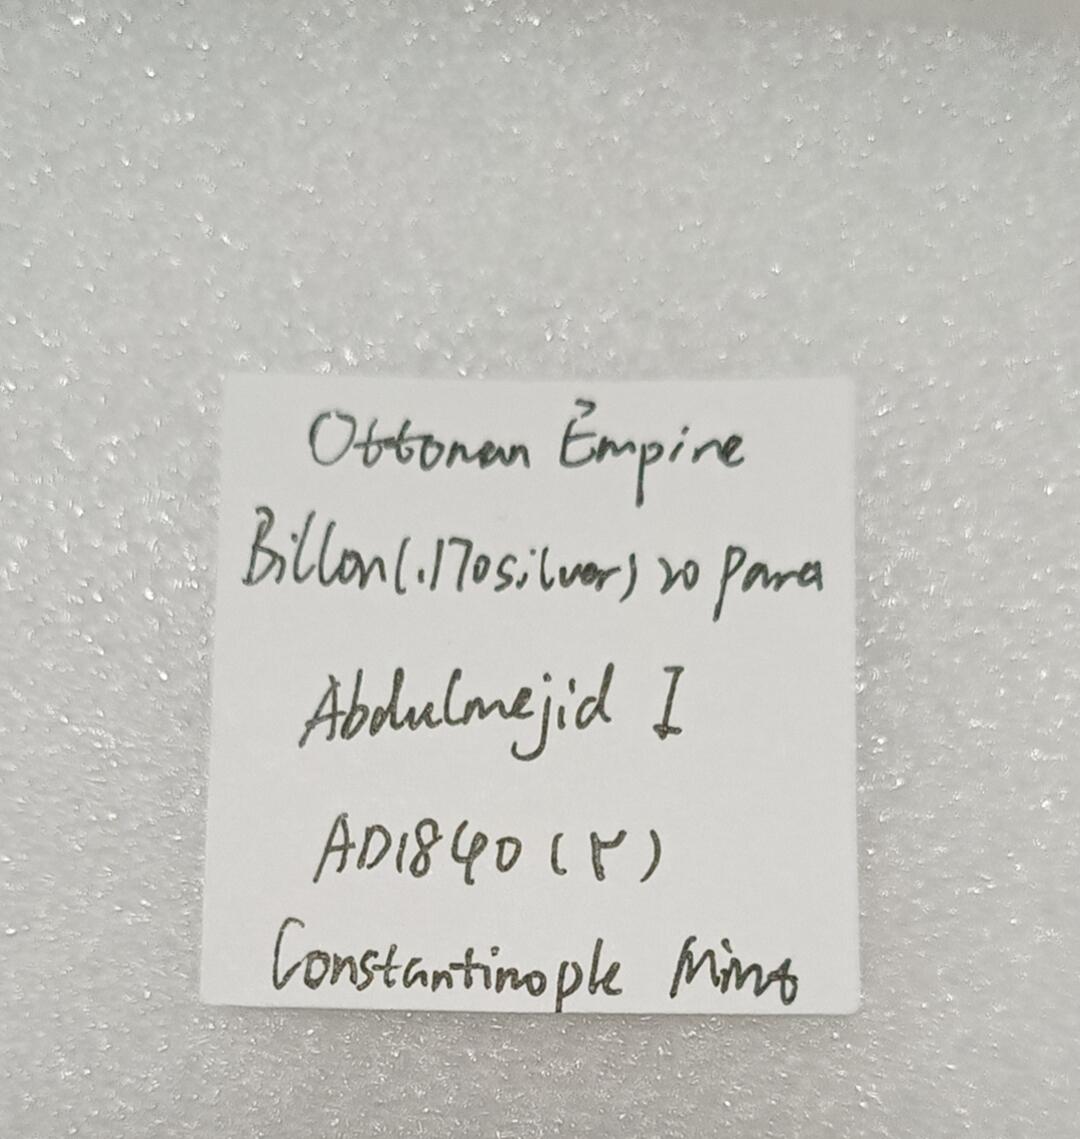 Ottoman Empire
Billon(.170silver) 20 Para
Abdulmejid I
AD1840 (٢)
Constantinople Mint